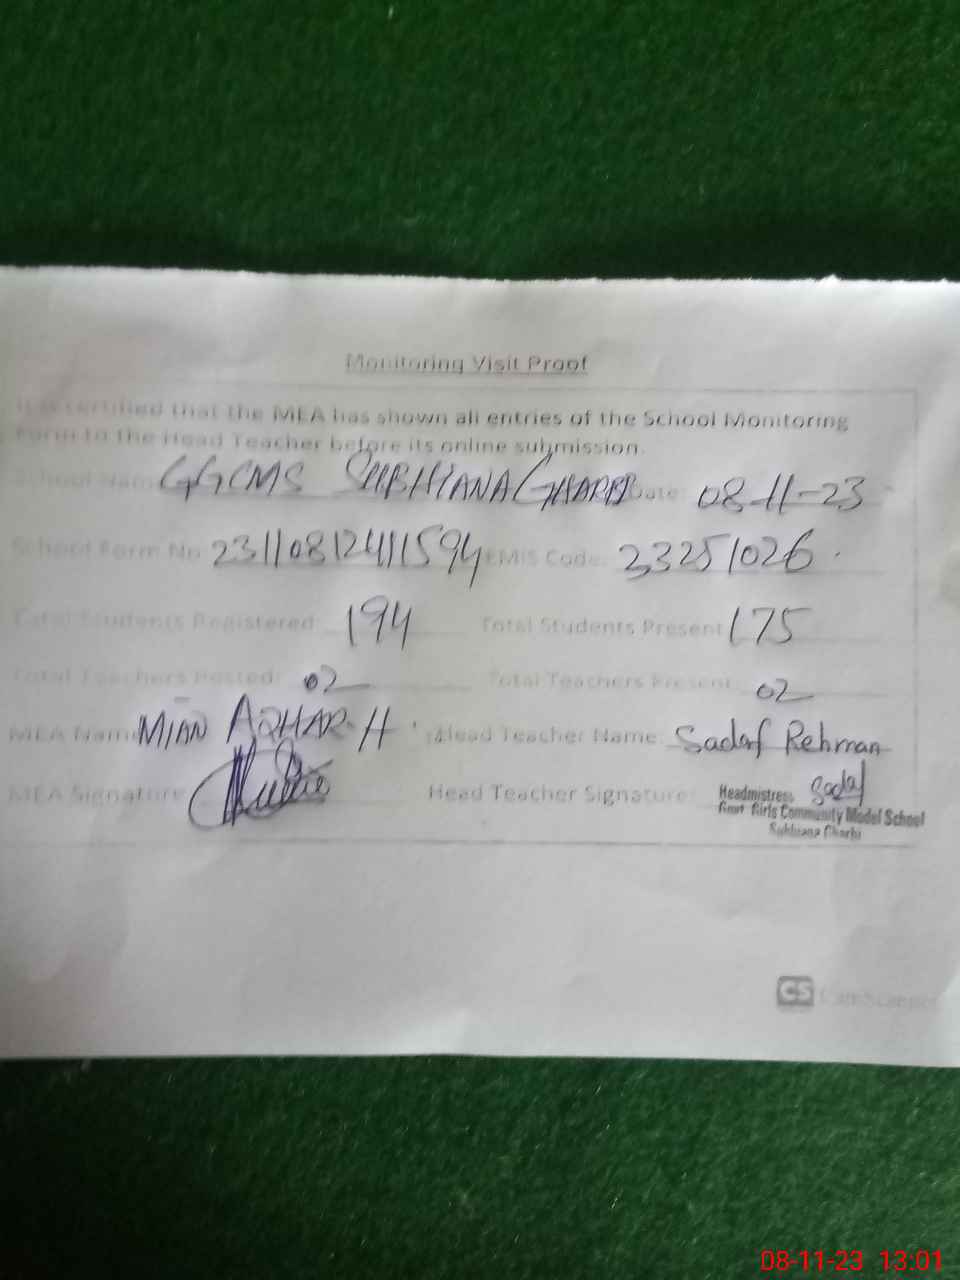 Monitoring Visit Proof
It is certified that the MEA has shown all entries of the School Monitoring
Form to the Head Teacher before its online submission.
School Name GGCMS SUBHIANA GHARBI Date: 08-11-23
School Form No 23110812411594 EMIS Code: 33251026
Total Students Registered: 194 Total Students Present 175
Total Teachers Posted: 02 Total Teachers Present: 02
MEA Name MIAN AZHAR H Head Teacher Name: Sadaf Rehman
MEA Signature Head Teacher Signature: Sadaf
Headmistress
Govt Girls Community Model School
Subhiana Gharbi
CS CamScanner
08-11-23 13:01